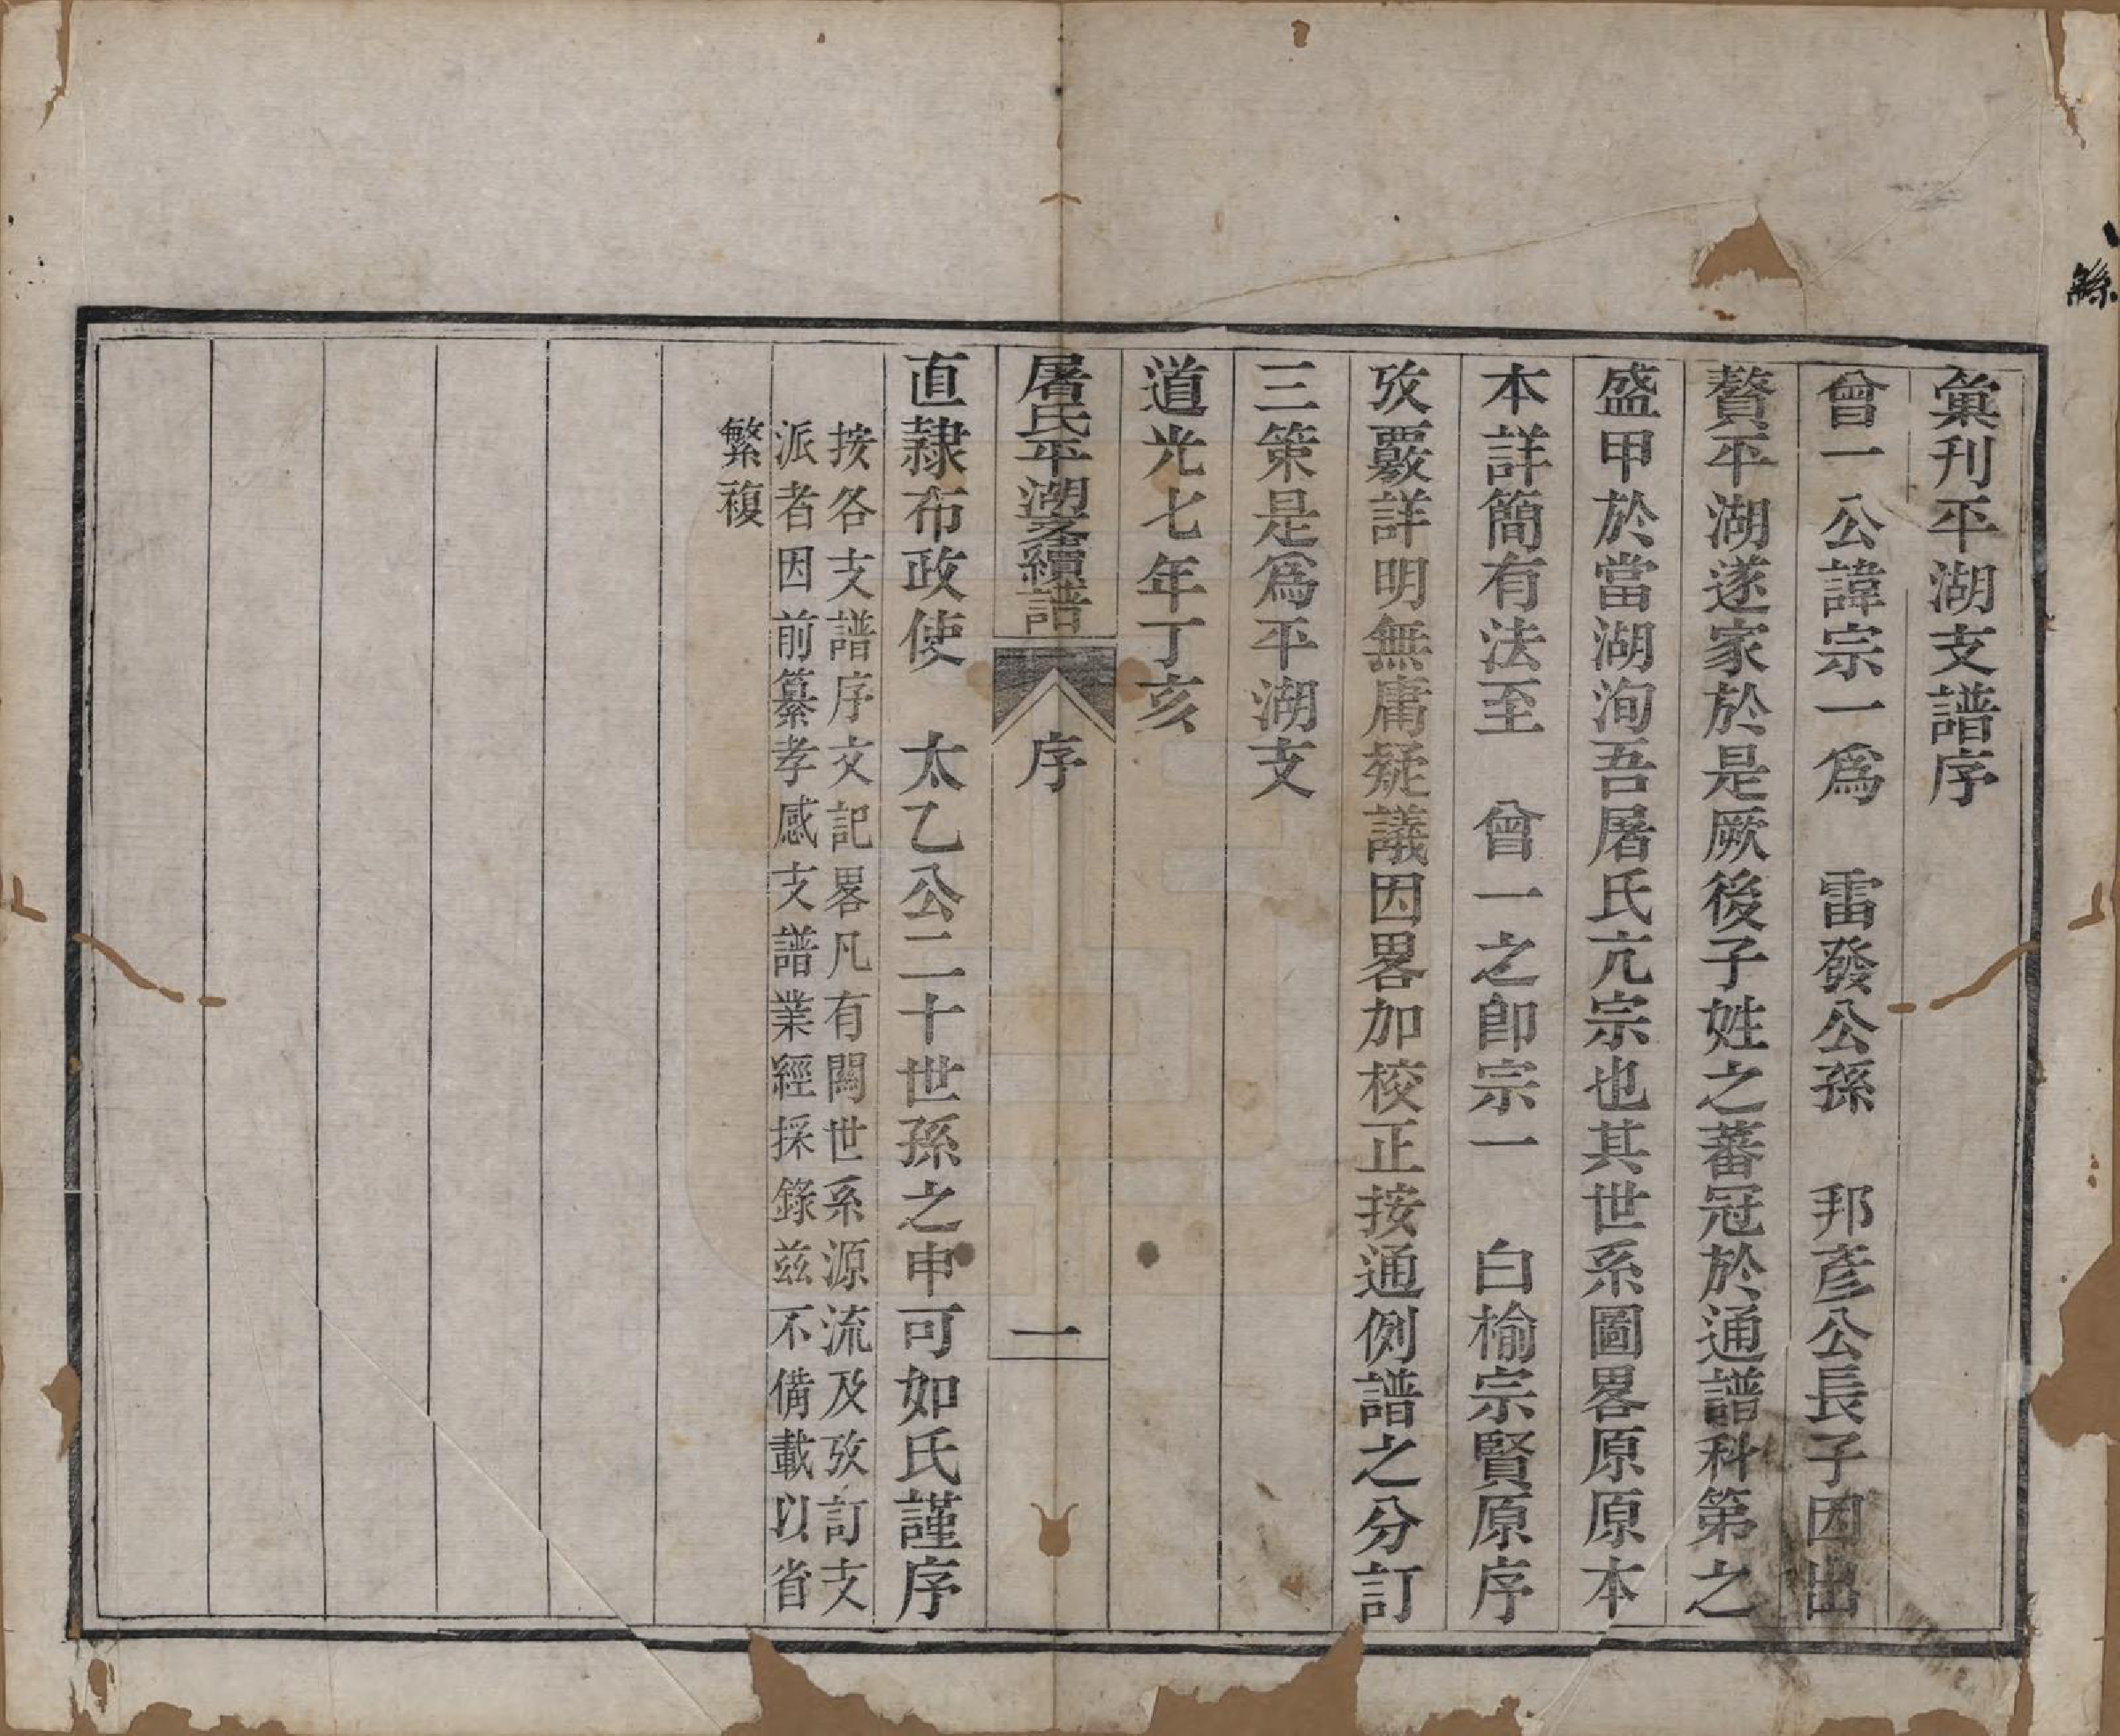 彙刋平湖支譜序
曾一公諱宗一爲　雷發公孫　邦彥公長子因出
贅平湖遂家於是厥後子姓之蕃冠於通譜科第之
盛甲於當湖洵吾屠氏亢宗也其世系圖畧原原本
本詳簡有法至　曾一之卽宗一　白榆宗賢原序
攷覈詳明無庸疑議因畧加校正按通例譜之分訂
三策是爲平湖支
道光七年丁亥
屠氏平湖支續譜　序　一
直隸布政使　太乙公二十世孫之申可如氏謹序
按各支譜序文記畧凡有關世系源流及攷訂支
派者因前纂孝感支譜業經採錄兹不備載以省
繁複